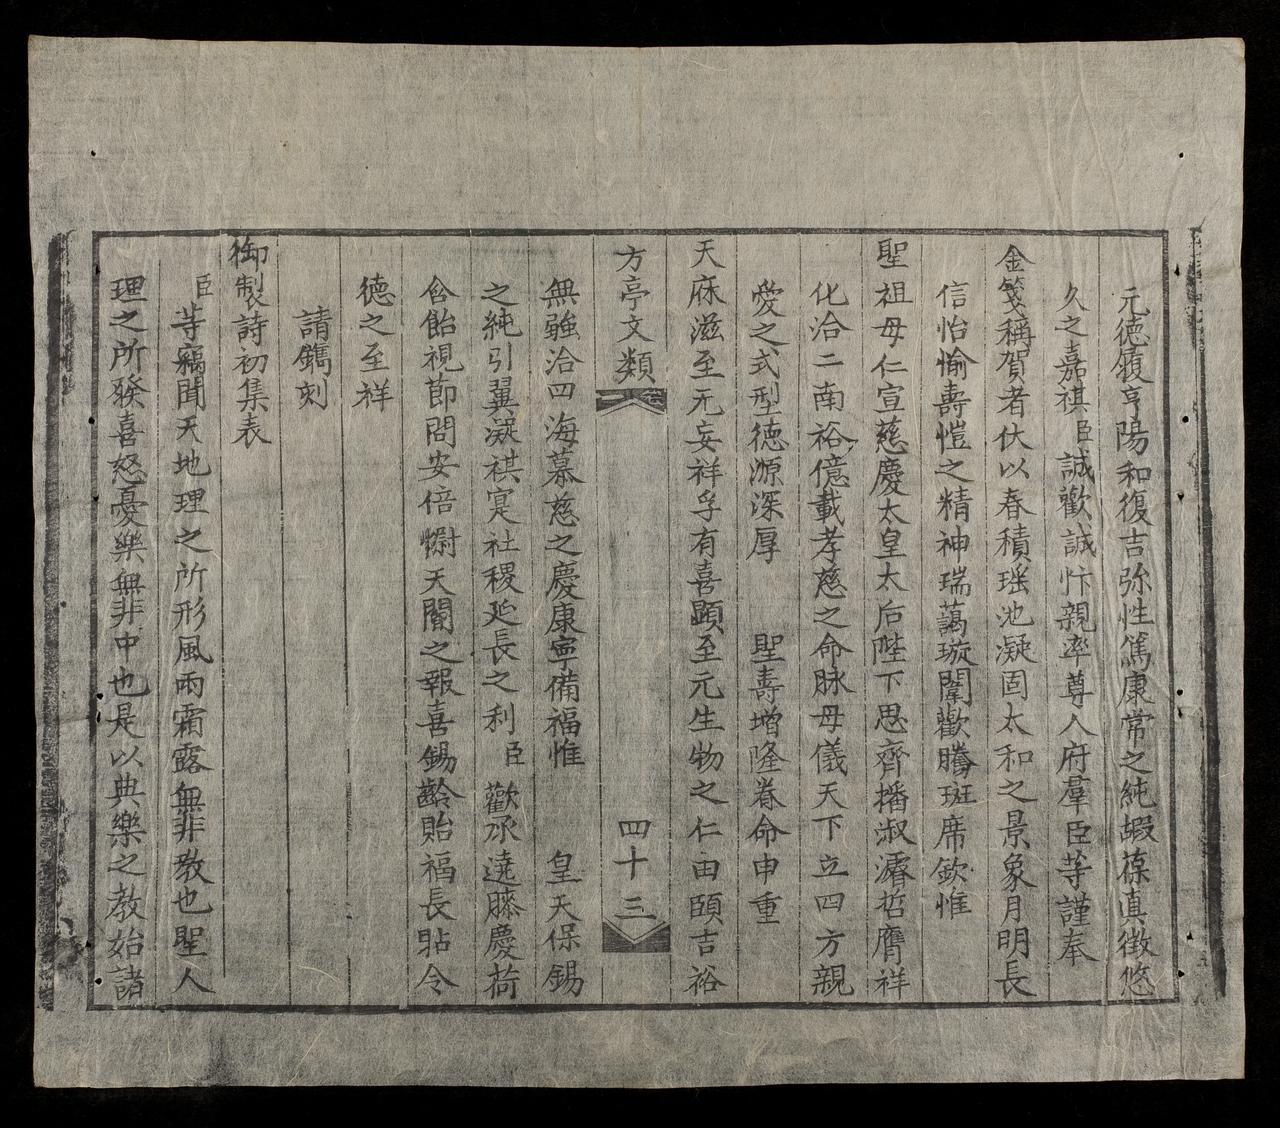 元德履亨陽和復吉弥性篤康常之純嘏葆真徵悠
久之嘉祺臣誠歡誠忭親率尊人府羣臣等謹奉
金箋稱賀者伏以春積瑤池凝固太和之景象月明長
信怡愉壽愷之精神瑞藹璇闈歡騰斑席欽惟
聖祖母仁宣慈慶太皇太后陛下思齊播淑濬哲膺祥
化洽二南裕億載孝慈之命脉母儀天下立四方親
愛之式型德源深厚 聖壽增隆眷命申重
天庥滋至无妄祥孚有喜顯至元生物之仁由頤吉裕
方亭文類 四十三
無彊洽四海慕慈之慶康寧備福惟 皇天保錫
之純引翼凝祺寔社稷延長之利臣歡承遶膝慶荷
含飴視節問安倍懰天閽之報喜錫齡貽福長昭令
德之至祥
請鐫刻
御製詩初集表
臣等竊聞天地理之所形風雨霜露無非教也聖人
理之所發喜怒憂樂無非中也是以典樂之教始諸